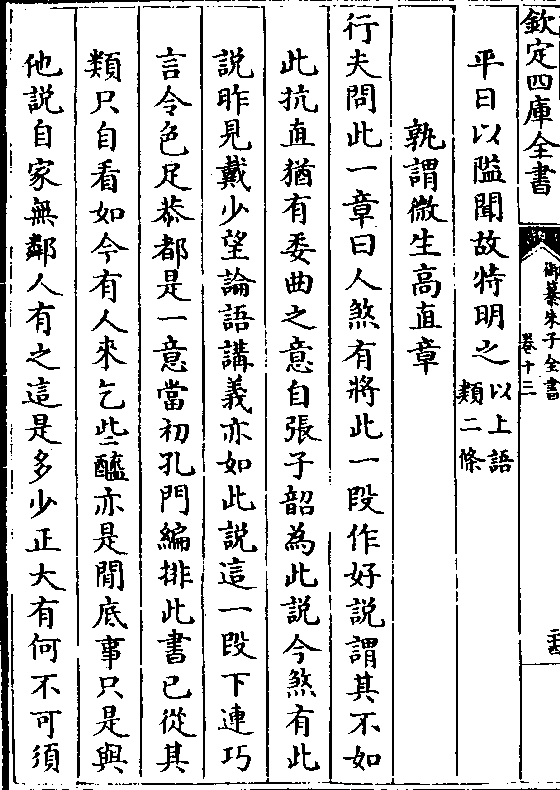 欽定四庫全書
御纂朱子全書
卷十三
平日以隘聞故特明之以上語
類二條
孰謂微生高直章
行夫問此一章曰人煞有將此一段作好說謂其不如
此抗直猶有委曲之意自張子韶為此說今煞有此
說昨見戴少望論語講義亦如此說這一段下連巧
言令色足恭都是一意當初孔門編排此書已從其
類只自看如今有人來乞些醯亦是閒底事只是與
他說自家無鄰人有之這是多少正大有何不可須